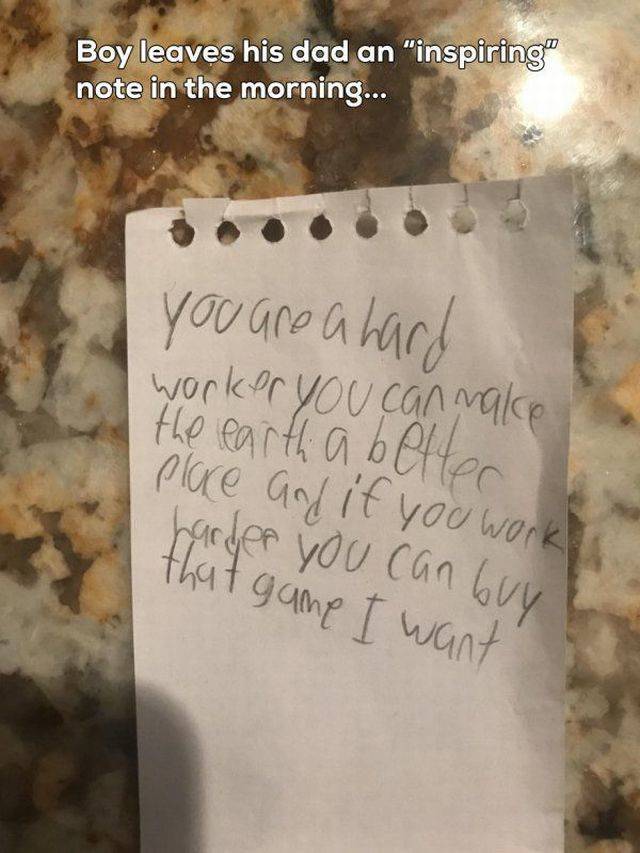 Boy leaves his dad an "inspiring"
note in the morning...
you are a hard
worker you can make
the earth a better
place and if you work
harder you can buy
that game I want